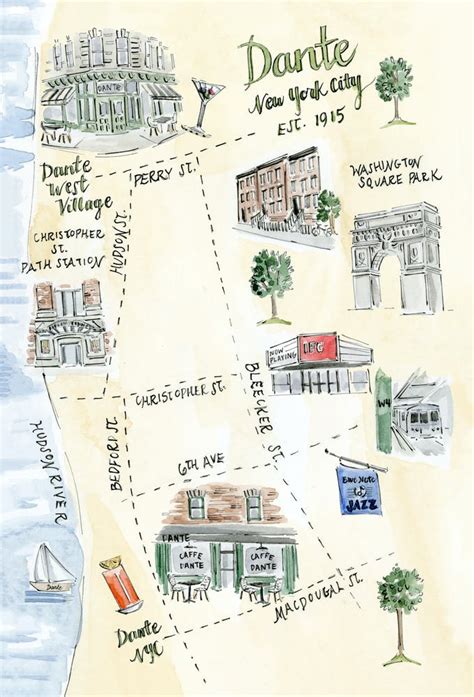 Dante
New York City
EST. 1915
DANTE
Dante
West
Village
PERRY ST.
WASHINGTON
SQUARE PARK
CHRISTOPHER
ST.
PATH STATION
HUDSON ST.
NOW
PLAYING
IFC
BLEECKER ST.
CHRISTOPHER ST.
W4
HUDSON RIVER
BEDFORD ST.
6TH AVE
BLUE NOTE
JAZZ
DANTE
CAFFE
DANTE
CAFFE
DANTE
Dante
MACDOUGAL ST.
Dante
NYC